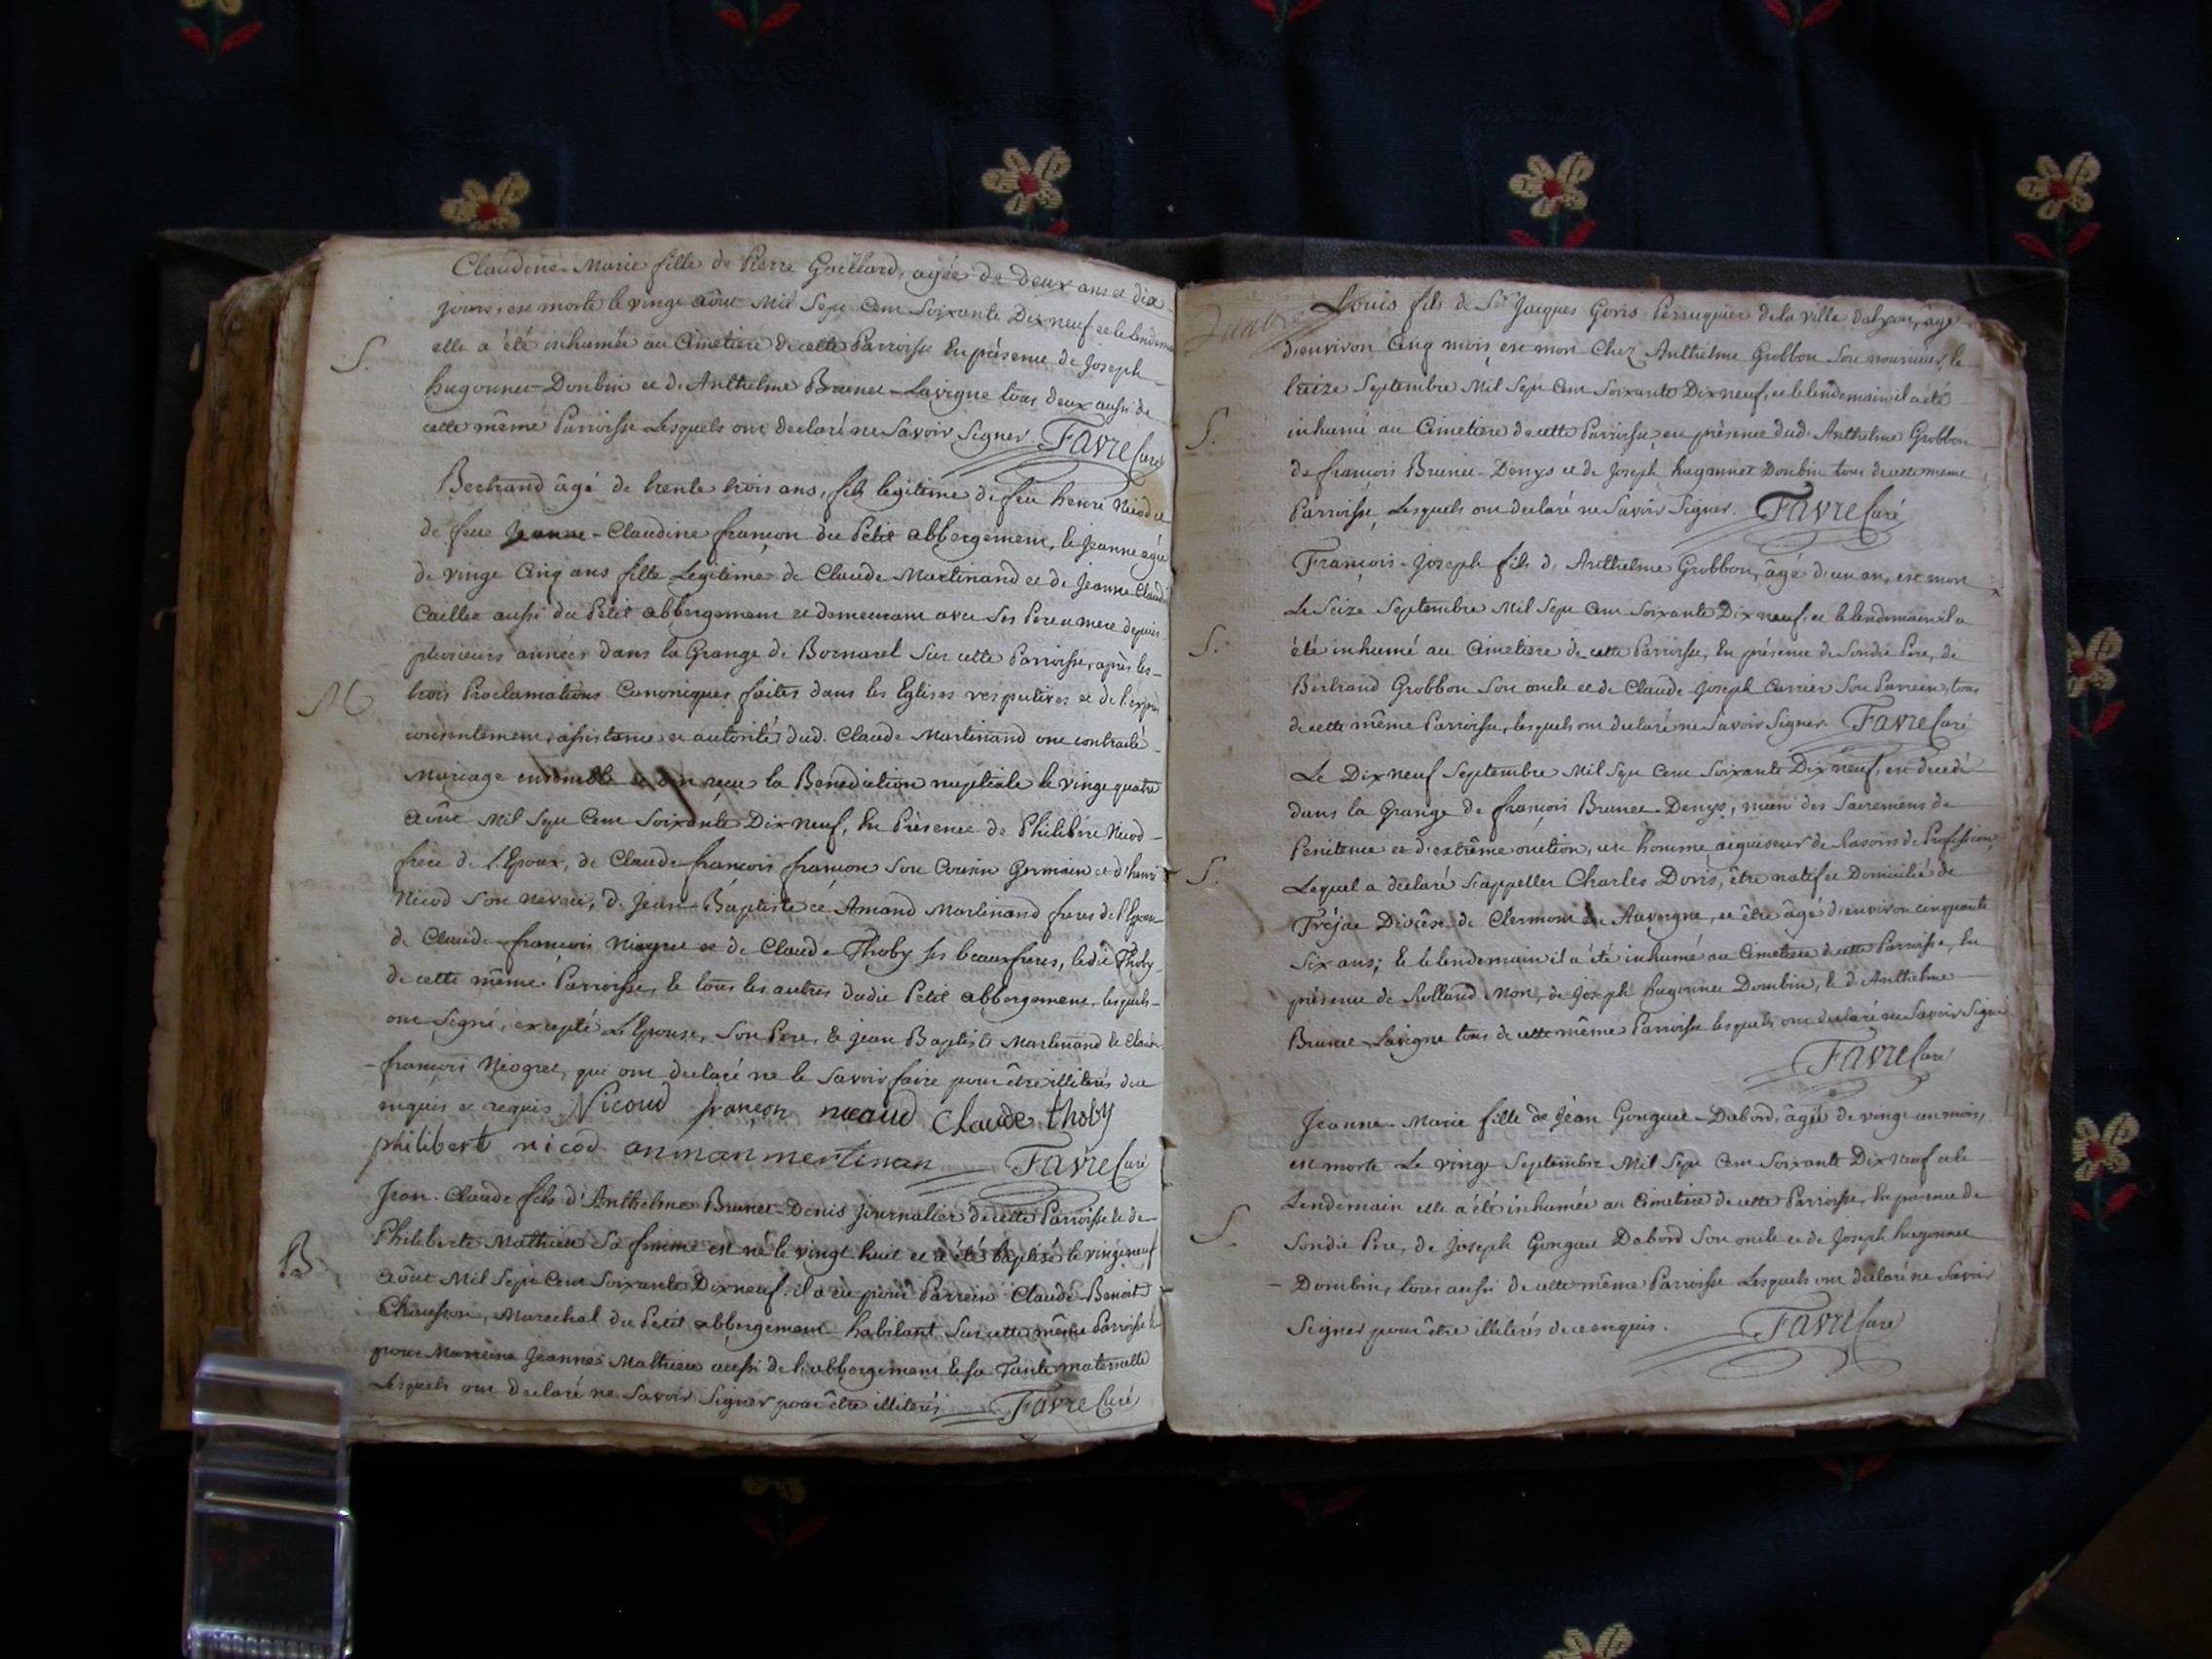 Claudine-Marie fille de Pierre Gaillard, agée de deux ans et dix
jours, est morte le vingt aôut Mil Sept Cent Soixante Dix neuf et le lendemain
S. elle a été inhumée au Cimetiere de cette Parroisse En présence de Joseph
hugonnet-Donbin et d'Anthelme Brunet-Lavigne tous deux aussi de
cette même Parroisse Lesquels ont declaré ne Savoir Signer. Favre Curé
Bertrand âgé de trente trois ans, fils legitime de feu henri Nicod et
de feue Jeanne-Claudine françon du Petit abbergement, et Jeanne agée
de vingt Cinq ans fille Legitime de Claude Martinand et de Jeanne Claudi
Caillet aussi du Petit abbergement et demeurant avec Ses Pere et mere depuis
plusieurs années dans la Grange de Bornarel Sur cette Parroisse, après les
M trois Proclamations Canoniques faites dans les Eglises respectives et de l'exprès
consentement, assistance et autorité dud. Claude Martinand ont contracté
Mariage ensemble et ont reçu la Benediction nuptiale le vingt quatre
aôut Mil Sept Cent Soixante Dix neuf, En Présence de Philibert Nicod
frere de l'Epoux, de Claude françois françon Son Cousin Germain et d'henri
Nicod Son neveu, de Jean-Baptiste et Amand Martinand freres de l'Epouse
de Claude-françois Niogret et de Claude Thoby Ses beaux freres, ledit Thoby
de cette même Parroisse, et tous les autres dudit Petit abbergement, lesquels
ont Signé, excepté L'Epouse, Son Pere, et Jean Baptiste Martinand et Claude
-françois Niogret, qui ont declaré ne le Savoir faire pour être illiterés de ce
enquis et requis Nicoud françon nicaud Claude thoby
philibert nicod anman mertinan Favre Curé
Jean-Claude fils d'Anthelme Brunet-Denis journalier de cette Parroisse et de
Philiberte Mathieu Sa femme est né le vingt huit et a été baptisé le vingt neuf
B. aôut Mil Sept Cent Soixante Dix neuf. il a eu pour Parrein Claude-Benoit
Chausson, Marechal du Petit abbergement habitant Sur cette même Parroisse et
pour Marreine Jeanne Mathieu aussi de l'abbergement et sa Tante maternelle
Lesquels ont declaré ne Savoir Signer pour être illiterés Favre Curé
Louis fils de Sr Jacques Goris Perruquier de la ville de Lyon, âgé
d'environ Cinq mois est mort Chez Anthelme Grobbon Son nourricier, le
treize Septembre Mil Sept Cent Soixante Dix neuf, et le lendemain il a été
S. inhumé au Cimetiere de cette Parroisse, en présence dud. Anthelme Grobbon
de françois Brunet-Denys et de Joseph hugonnet Donbin tous de cette meme
Parroisse, Lesquels ont declaré ne Savoir Signer. Favre Curé
François-Joseph fils d'Anthelme Grobbon, âgé d'un an, est mort
Le Seize Septembre Mil Sept Cent Soixante Dix neuf, et le lendemain il a
S. été inhumé au Cimetiere de cette Parroisse, En présence de Sondit Pere, de
Bertrand Grobbon Son oncle et de Claude-Joseph Carrier Son Parrein, tous
de cette même Parroisse, lesquels ont declaré ne Savoir Signer Favre Curé
Le Dix neuf Septembre Mil Sept Cent Soixante Dix neuf, est decedé
dans la Grange de françois Brunet-Denys, muni des Sacremens de
Penitence et d'extrême onction, un homme aiguiseur de Rasoirs de Profession,
S. Lequel a declaré S'appeller Charles Doris, être natif et Domicilié de
Tréjat Diocêse de Clermont en Auvergne, et être âgé d'environ cinquante
Six ans; et le lendemain il a été inhumé au Cimetiere de cette Parroisse, En
présence de Rolland Mon, de Joseph hugonnet Dombin, et d'Anthelme
Brunet-Lavigne tous de cette même Parroisse lesquels ont declaré ne Savoir Signer
Favre Curé
Jeanne-Marie fille de Jean Gonguet-Dabord, âgée de vingt un mois,
est morte Le vingt Septembre Mil Sept Cent Soixante Dix neuf et le
Lendemain elle a été inhumée au Cimetiere de cette Parroisse, En presence de
S. Sondit Pere, de Joseph Gonguet Dabord Son oncle et de Joseph hugonnet
- Dombin, tous aussi de cette même Parroisse Lesquels ont declaré ne Savoir
Signer pour être illiterés de ce enquis. Favre Curé